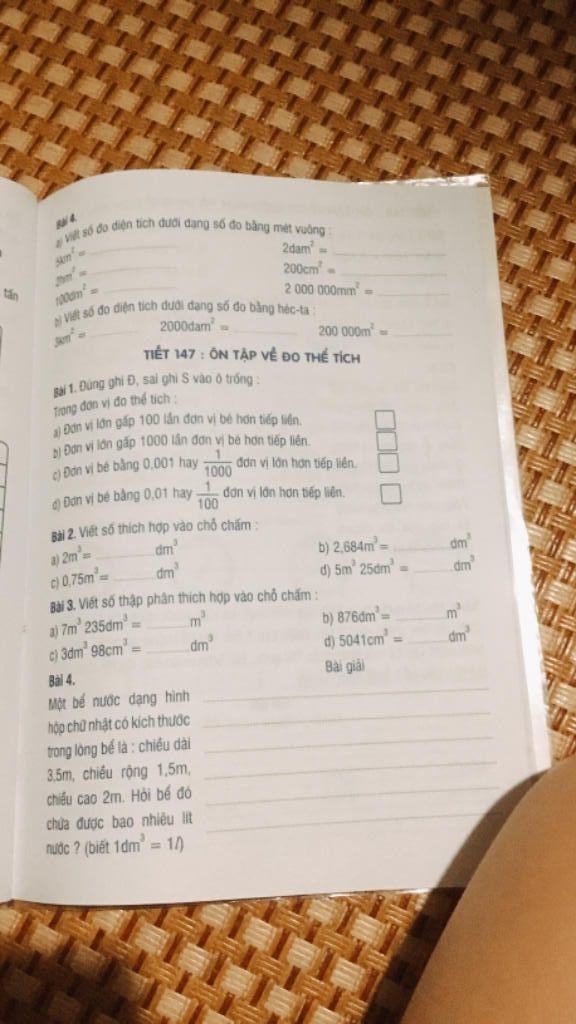 tấn
Bài 4.
a) Viết số đo diện tích dưới dạng số đo bằng mét vuông :
5km² = ________ 2dam² = ________
2hm² = ________ 200cm² = ________
100dm² = ________ 2 000 000mm² = ________
b) Viết số đo diện tích dưới dạng số đo bằng héc-ta :
3km² = ________ 2000dam² = ________ 200 000m² = ________
TIẾT 147 : ÔN TẬP VỀ ĐO THỂ TÍCH
Bài 1. Đúng ghi Đ, sai ghi S vào ô trống :
Trong đơn vị đo thể tích :
a) Đơn vị lớn gấp 100 lần đơn vị bé hơn tiếp liền.
b) Đơn vị lớn gấp 1000 lần đơn vị bé hơn tiếp liền.
c) Đơn vị bé bằng 0,001 hay 1/1000 đơn vị lớn hơn tiếp liền.
d) Đơn vị bé bằng 0,01 hay 1/100 đơn vị lớn hơn tiếp liền.
Bài 2. Viết số thích hợp vào chỗ chấm :
a) 2m³ = ________ dm³ b) 2,684m³ = ________ dm³
c) 0,75m³ = ________ dm³ d) 5m³ 25dm³ = ________ dm³
Bài 3. Viết số thập phân thích hợp vào chỗ chấm :
a) 7m³ 235dm³ = ________ m³ b) 876dm³ = ________ m³
c) 3dm³ 98cm³ = ________ dm³ d) 5041cm³ = ________ dm³
Bài 4. Bài giải
Một bể nước dạng hình
hộp chữ nhật có kích thước
trong lòng bể là : chiều dài
3,5m, chiều rộng 1,5m,
chiều cao 2m. Hỏi bể đó
chứa được bao nhiêu lít
nước ? (biết 1dm³ = 1l)